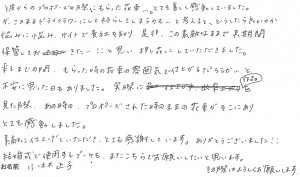 彼からのプロポーズの際にもらった花束…。とても嬉しく感動していました。
が、このままドライフラワーにしても枯らしてしまうのも…と考えると、どうしたらよいのか
悩みに悩み、サイトで貴社を知り 是非、この素敵なままで長期間
保管しておきたい…と思い、押し花にしていただきました。
来るまでの間、もらった時の花束の雰囲気で仕上がるだろうか…と
不安に思った日もありました。実際に
見た際、あの時の、プロポーズされた日のままの花束がそこにあり
とても感動しました。
素敵に仕上げていただき、とても感謝しています。ありがとうございました
結婚式で使用するブーケも、またこちらでお願いしたいと思います。
お名前
その際はよろしくお願いします